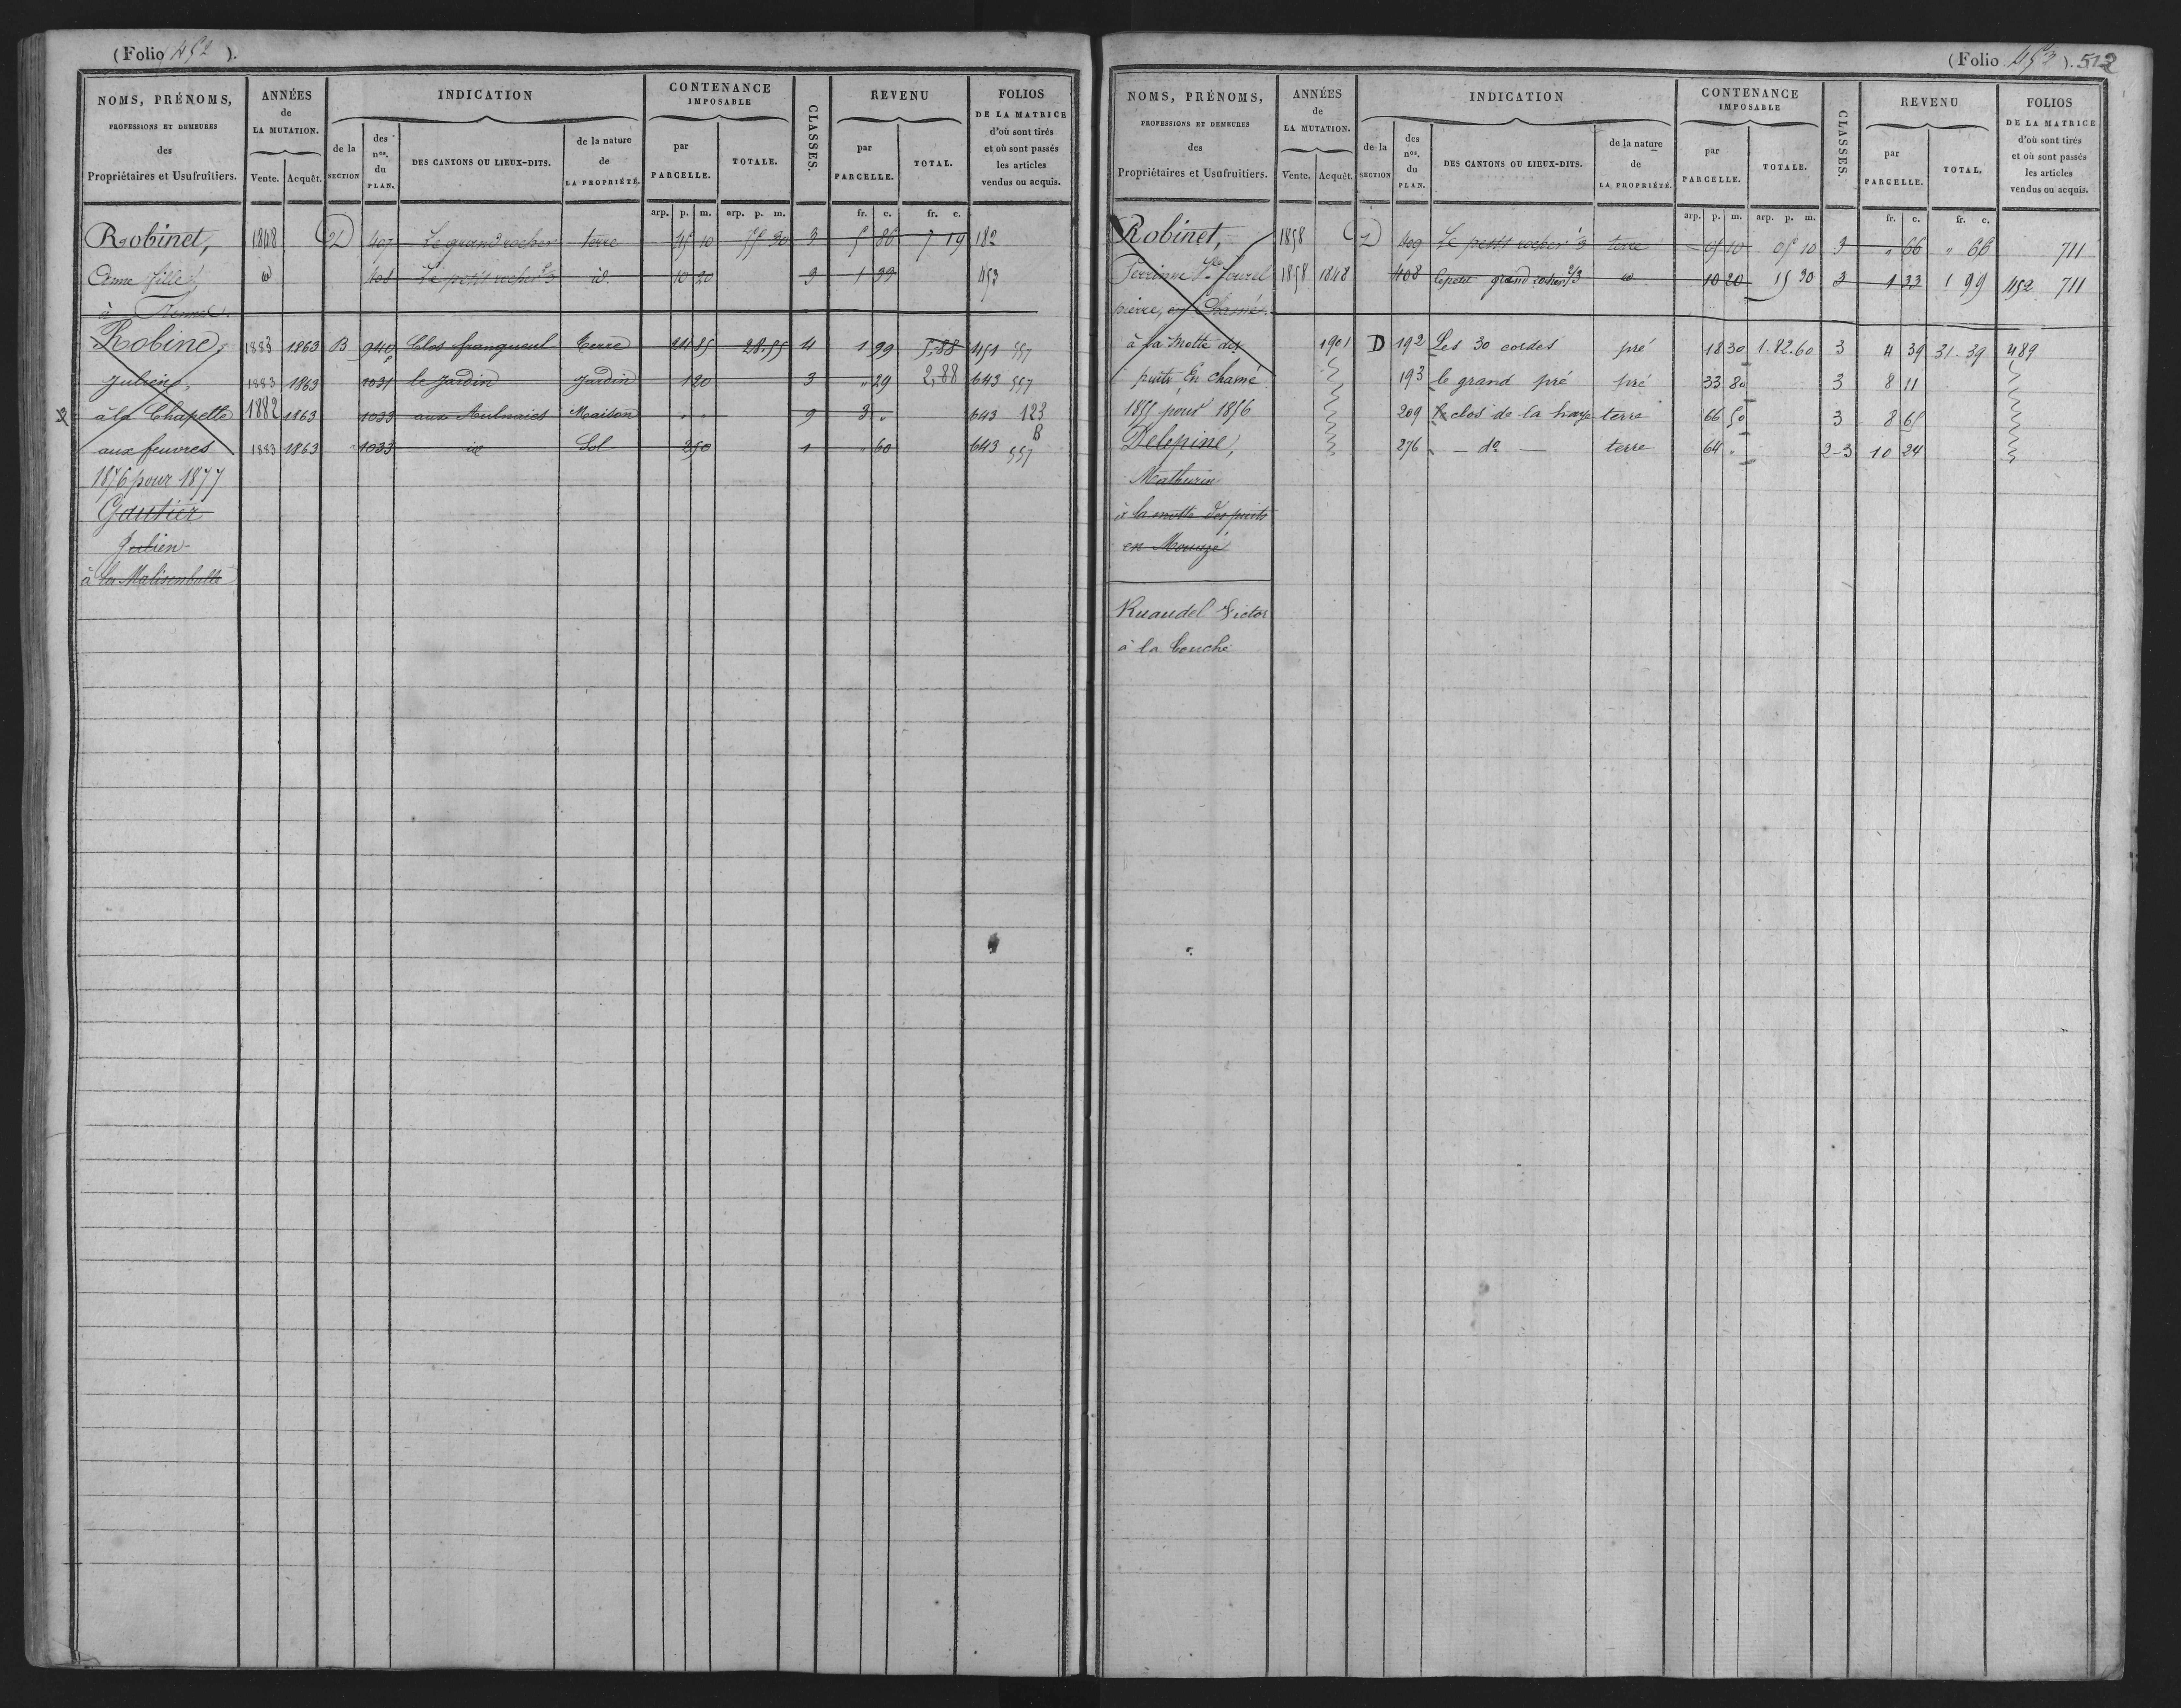 (Folio 452 ).
NOMS, PRÉNOMS,
PROFESSIONS ET DEMEURES
des
Propriétaires et Usufruitiers.
ANNÉES
de
LA MUTATION.
Vente. Acquêt.
INDICATION
de la
SECTION
des
nos.
du
PLAN.
DES CANTONS OU LIEUX-DITS.
de la nature
de
LA PROPRIÉTÉ.
CONTENANCE
IMPOSABLE
par
PARCELLE.
TOTALE.
CLASSES.
REVENU
par
PARCELLE.
TOTAL.
FOLIOS
DE LA MATRICE
d'où sont tirés
et où sont passés
les articles
vendus ou acquis.
arp. p. m. arp. p. m. fr. c. fr. c.
Robinet, 1848 407 Le grand rocher terre 45 10 55 30 3 5 86 7 19 182
Anne fille 408 Le petit rocher 2/3 id. 10 20 3 1 33 453
à
Robine, 1883 1863 B 940 Clos franqueul Terre 24 85 28.55 4 1 99 5,88 451 557
Julien, 1883 1863 1031 le Jardin Jardin 1 20 3 " 29 2,88 643 557
à la Chapelle 1882 1863 1033 aux Aulnaies Maison " " 9 3 " 643 123
B
aux feuvres 1883 1863 1033 id Sol 2 50 1 " 60 643 557
1876 pour 1877
Gautier
Julien
à la
(Folio 453 ). 512
NOMS, PRÉNOMS,
PROFESSIONS ET DEMEURES
des
Propriétaires et Usufruitiers.
ANNÉES
de
LA MUTATION.
Vente. Acquêt.
INDICATION
de la
SECTION
des
nos.
du
PLAN.
DES CANTONS OU LIEUX-DITS.
de la nature
de
LA PROPRIÉTÉ.
CONTENANCE
IMPOSABLE
par
PARCELLE.
TOTALE.
CLASSES.
REVENU
par
PARCELLE.
TOTAL.
FOLIOS
DE LA MATRICE
d'où sont tirés
et où sont passés
les articles
vendus ou acquis.
arp. p. m. arp. p. m. fr. c. fr. c.
Robinet, 1858 409 Le petit rocher 1/3 terre 05 10 05 10 3 " 66 " 66 711
Perrine 1858 1848 408 le petit grand rocher 2/3 id 10 20 15 30 3 1 33 1 99 452 711
pierre, en Chasné.
à la Motte des 1901 D 192 Les 30 cordes pré 18 30 1.82.60 3 4 39 31.39 489
puits En chasné 193 le grand pré pré 33 80 3 8 11
1855 pour 1856 209 le clos de la terre 66 50 3 8 65
Delepine, 276 - do - terre 64 " 2-3 10 24
Mathurin
à la motte des puits
en Mouazé
Ruaudel Victor
à la Touche